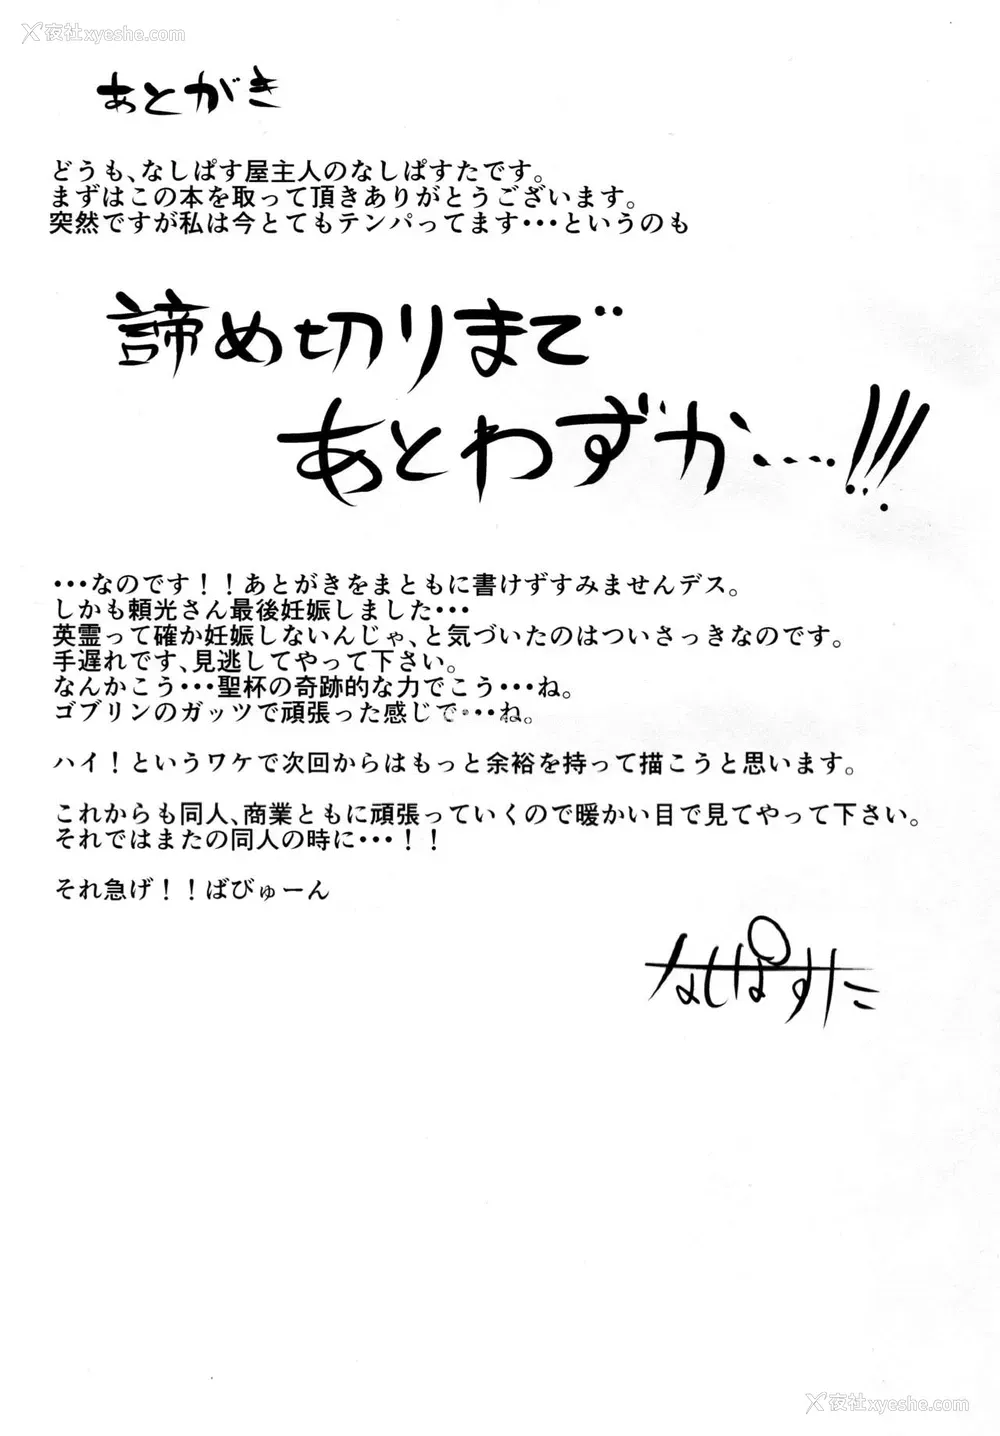 夜社xyeshe.com
あとがき
どうも、なしぱす屋主人のなしぱすたです。
まずはこの本を取って頂きありがとうございます。
突然ですが私は今とてもテンパってます・・・というのも
諦め切りまで
あとわずか・・・・!!!
・・・なのです！！あとがきをまともに書けずすみませんデス。
しかも頼光さん最後妊娠しました・・・
英霊って確か妊娠しないんじゃ、と気づいたのはついさっきなのです。
手遅れです、見逃してやって下さい。
なんかこう・・・聖杯の奇跡的な力でこう・・・ね。
ゴブリンのガッツで頑張った感じで・・・ね。
ハイ！というワケで次回からはもっと余裕を持って描こうと思います。
これからも同人、商業ともに頑張っていくので暖かい目で見てやって下さい。
それではまたの同人の時に・・・！！
それ急げ！！ばびゅーん
なしぱすた
夜社xyeshe.com